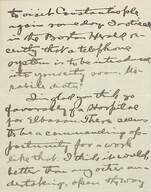 to visit Constantinople
again some day. I noticed
in the Boston Herald re-
cently that a telephone
system is to be introduced
into your city soon. Mi-
rabile dictu!
I do look with
favor a Hospital
for Elbasan. There seems
to be a commanding op-
portunity for a work
like that. I think it would
better than any other un-
dertaking, open the way